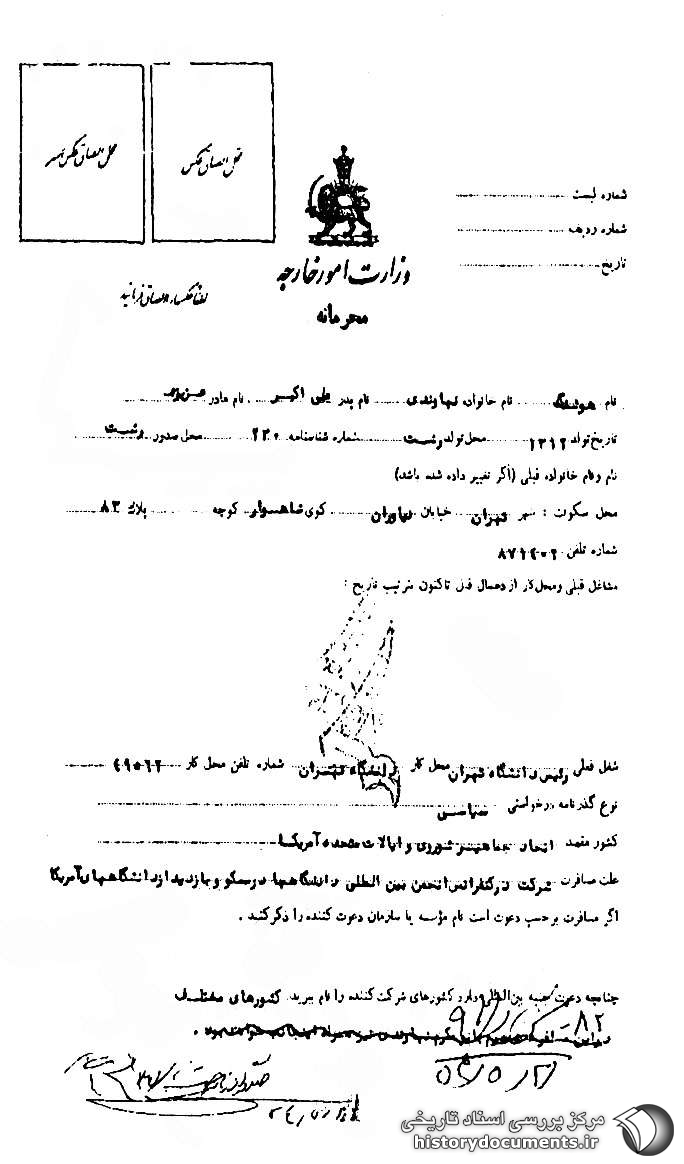 محل الصاق عکس همسر
محل الصاق عکس
شماره لیست
شماره ردیف
تاریخ
وزارت امور خارجه
محرمانه
لطفا عکسها را الصاق فرمائید
نام هوشنگ نام خانواده نهاوندی نام پدر علی اکبر نام مادر
تاریخ تولد ۱۳۱۲ محل تولد رشت شماره شناسنامه ۲۳۰ محل صدور رشت
نام و نام خانواده قبلی (اگر تغییر داده شده باشد)
محل سکونت : شهر تهران خیابان نیاوران کوی شاهسوار کوچه پلاک ۸۳
شماره تلفن
مشاغل قبلی و محل کار از دهسال قبل تاکنون بترتیب تاریخ :
شغل فعلی رئیس دانشگاه تهران محل کار دانشگاه تهران شماره تلفن محل کار
نوع گذرنامه درخواستی سیاسی
کشور مقصد اتحاد جماهیر شوروی و ایالات متحده آمریکا
علت مسافرت شرکت در کنفرانس انجمن بین المللی دانشگاهها در مسکو و بازدید از دانشگاههای آمریکا
اگر مسافرت بر حسب دعوت است نام مؤسسه یا سازمان دعوت کننده را ذکر کنید .
چنانچه دعوت جنبه بین‌المللی دارد کشورهای شرکت کننده را نام ببرید. کشورهای مختلف
مرکز بررسی اسناد تاریخی
historydocuments.ir